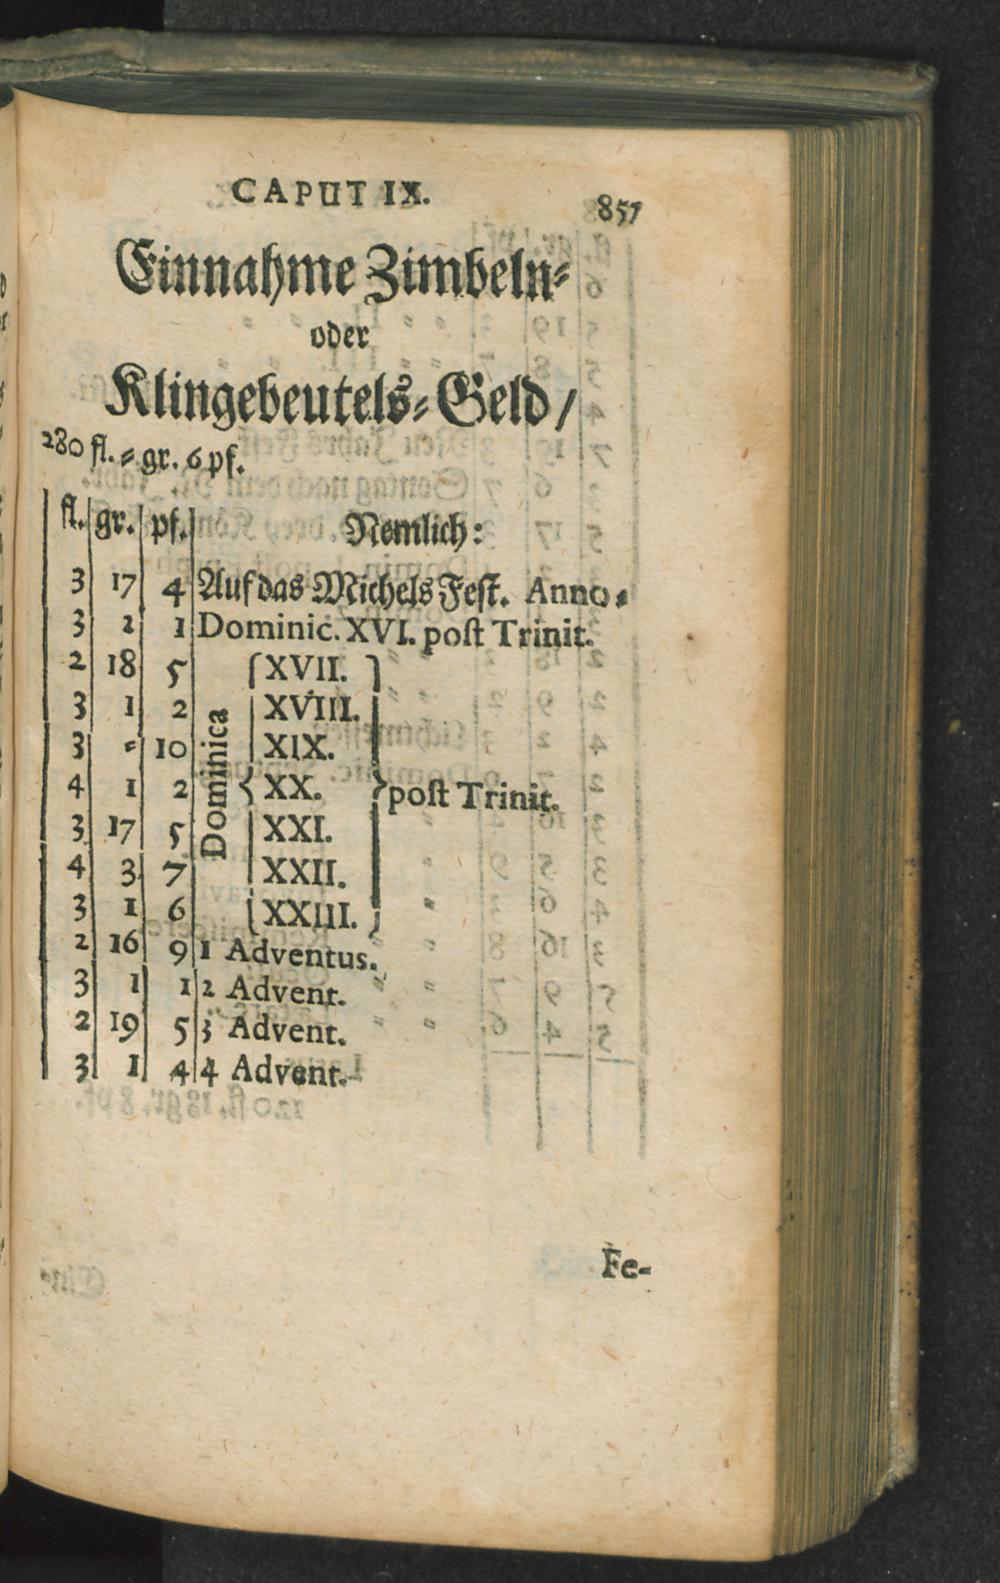 CAPUT IX. 857
Einnahme Zimbeln⸗
oder
Klingebeutels⸗Geld /
280 fl. ⸗ gr. 6 pf.
fl. gr. pf. Nemlich:
3 17 4 Auf das Michels Fest. Anno ⸗
3 2 1 Dominic. XVI. post Trinit.
2 18 5 XVII.
3 1 2 XVIII.
3 ⸗ 10 XIX.
4 1 2 Dominica XX. post Trinit.
3 17 5 XXI.
4 3 7 XXII.
3 1 6 XXIII.
2 16 9 1 Adventus.
3 1 1 2 Advent.
2 19 5 3 Advent.
3 1 4 4 Advent.
Fe-